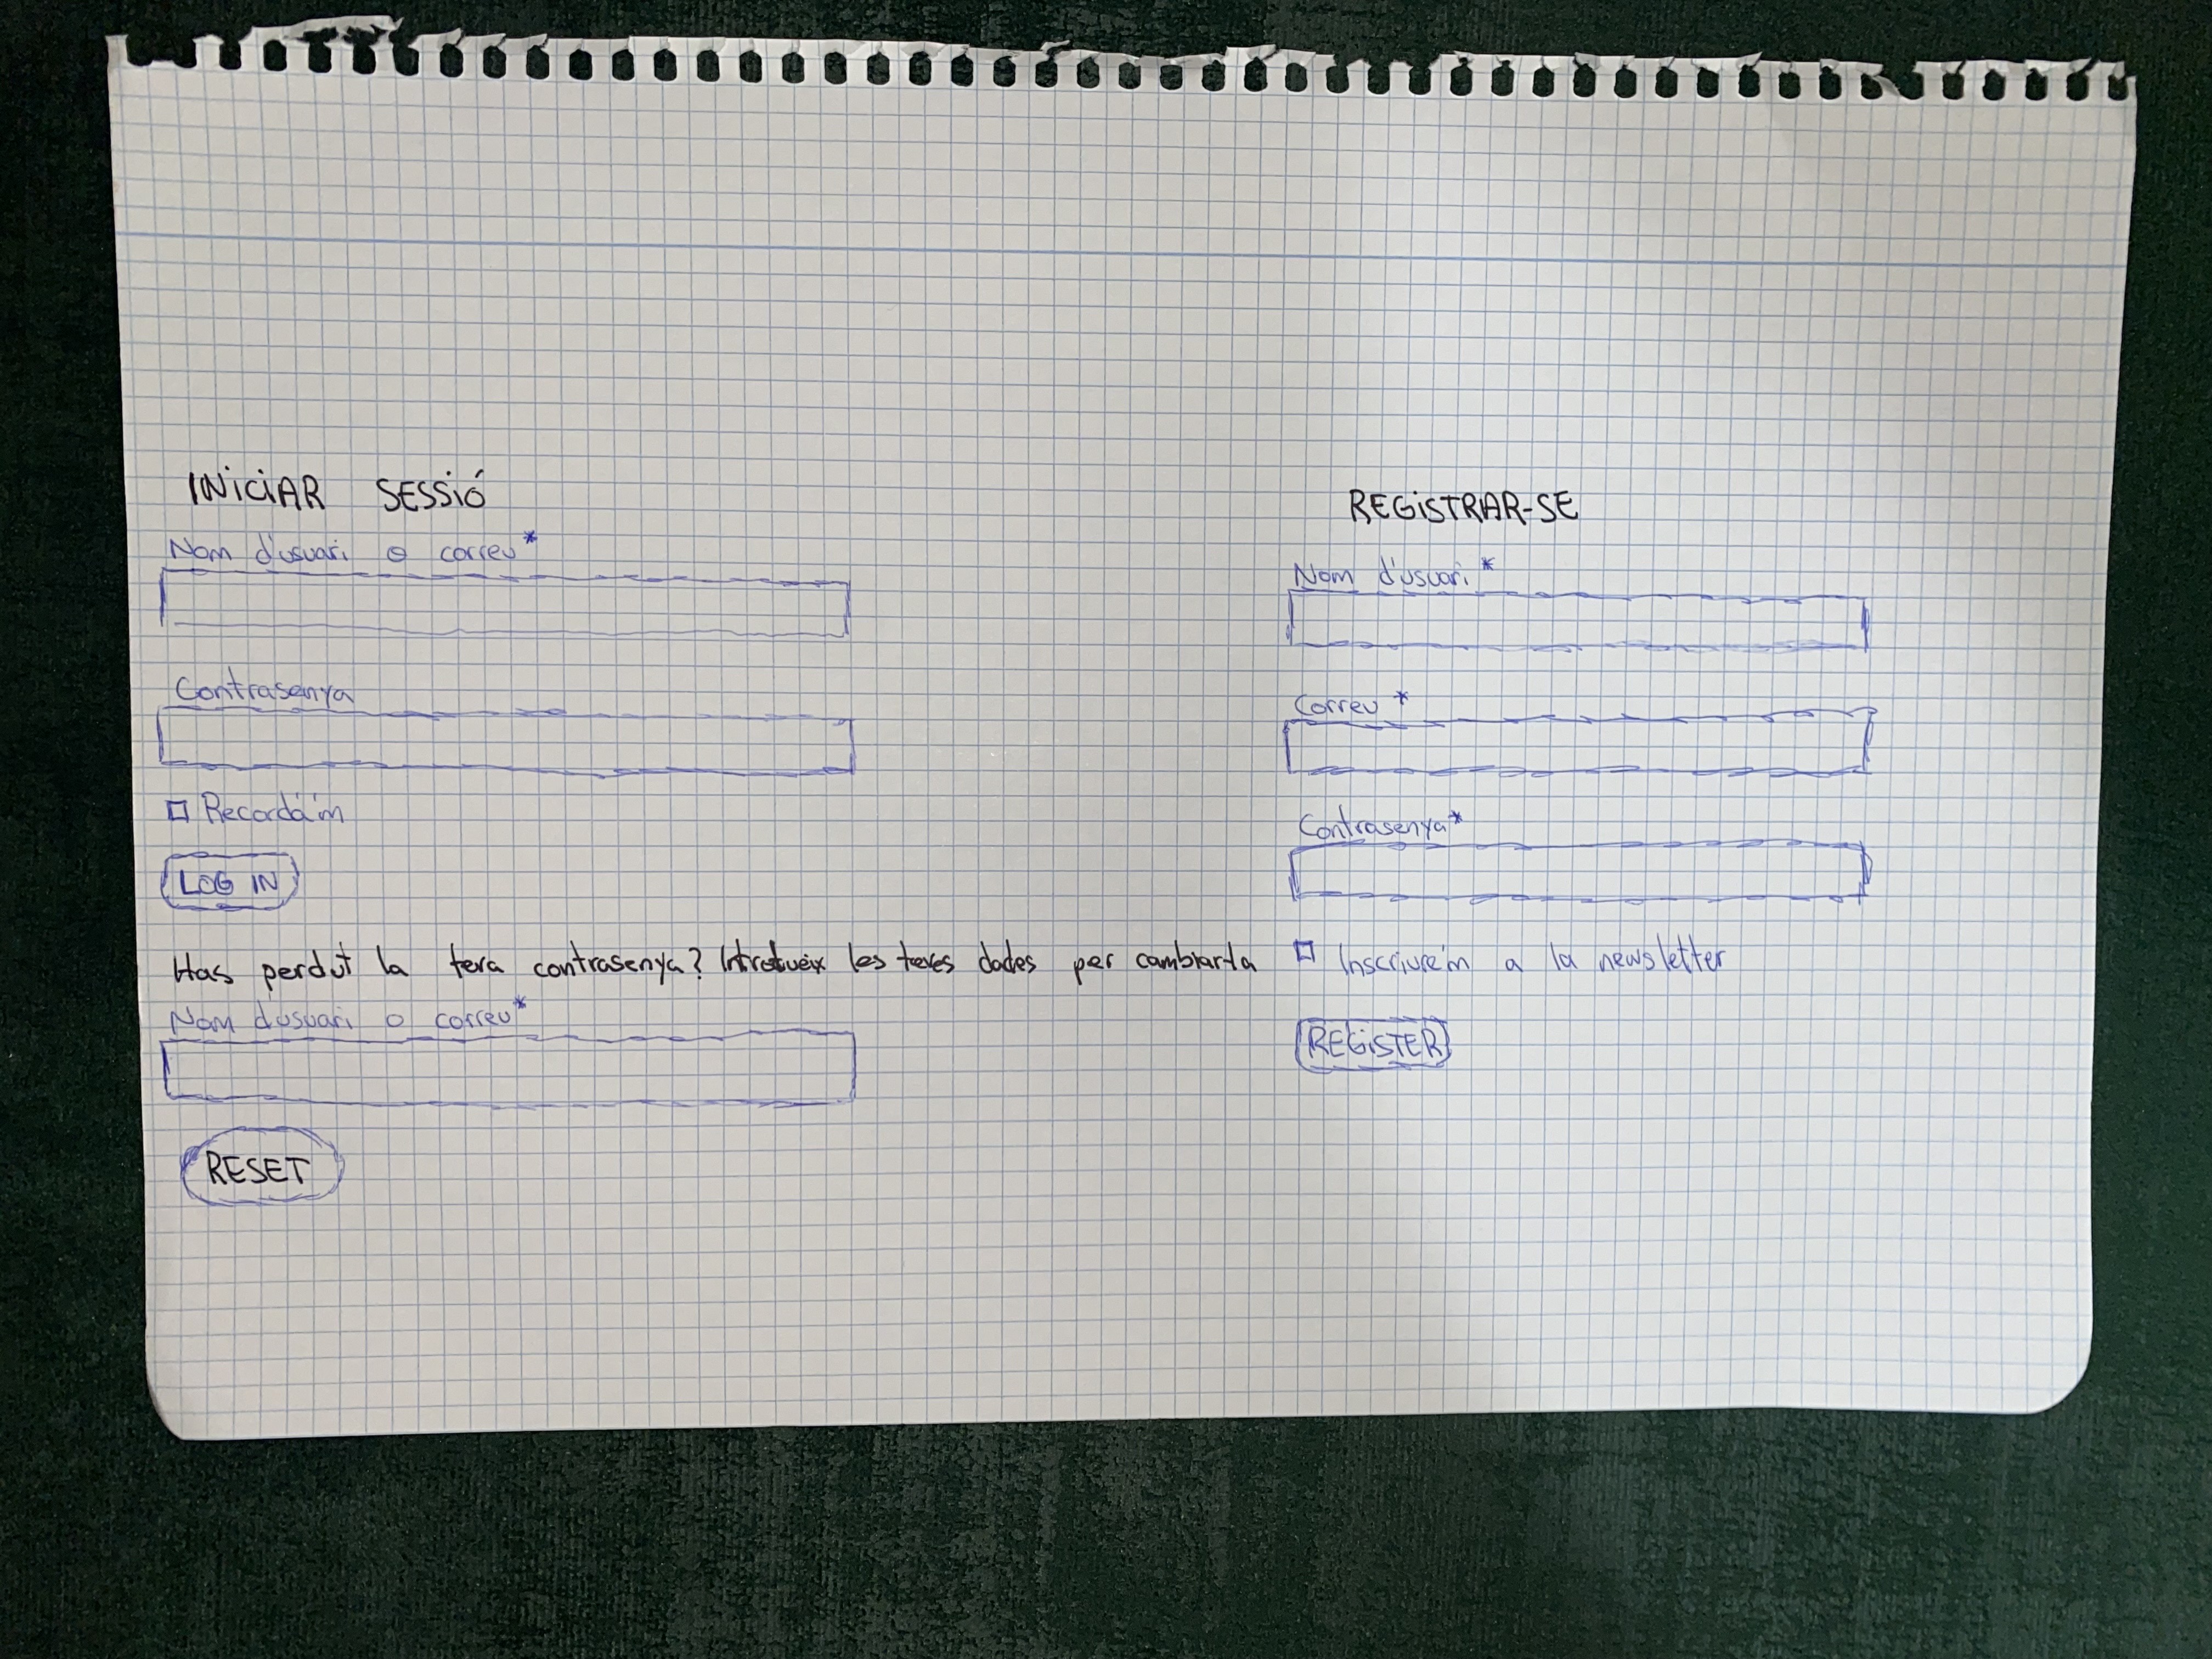 INICIAR SESSIÓ
Nom d'usuari o correu*
Contrasenya
Recorda'm
LOG IN
Has perdut la teva contrasenya? Introdueix les teves dades per cambiarla
Nom d'usuari o correu*
RESET
REGISTRAR-SE
Nom d'usuari*
Correu *
Contrasenya*
Inscriure'm a la newsletter
REGISTER